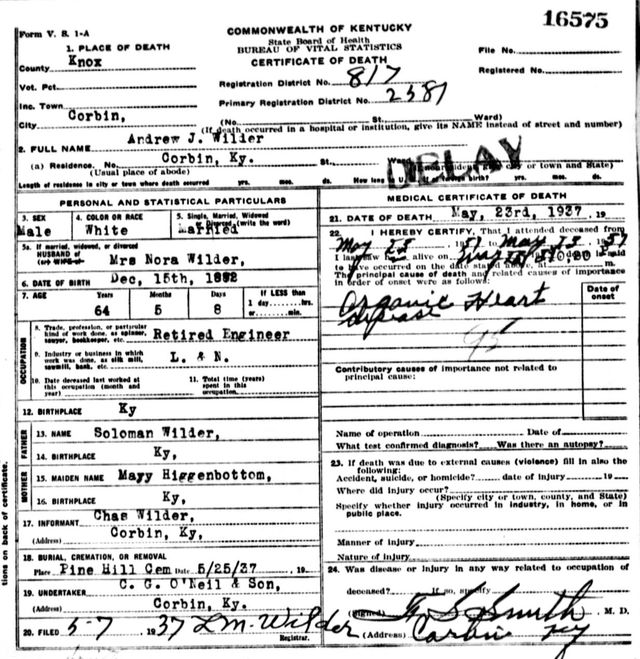 16575
Form V. S. 1-A
COMMONWEALTH OF KENTUCKY
State Board of Health
BUREAU OF VITAL STATISTICS
CERTIFICATE OF DEATH
File No.
Registered No.
1. PLACE OF DEATH
County Knox
Registration District No. 817
Vot. Pct.
Primary Registration District No. 2381
Inc. Town
City Corbin, (No. St. Ward)
(If death occurred in a hospital or institution, give its NAME instead of street and number)
2. FULL NAME Andrew J. Wilder
DELAY
(a) Residence. No. Corbin, Ky. St., Ward
(Usual place of abode) city or town and State)
Length of residence in city or town where death occurred yrs. mos. ds. How long in U. S. if of foreign birth? yrs. mos. ds.
PERSONAL AND STATISTICAL PARTICULARS
3. SEX Male
4. COLOR OR RACE White
5. Single, Married, Widowed or Divorced (write the word) Married
5a. If married, widowed, or divorced
HUSBAND of
(or) WIFE of Mrs Nora Wilder,
6. DATE OF BIRTH Dec, 15th,
7. AGE Years 64 Months 5 Days 8 If LESS than 1 day hrs. or min.
OCCUPATION
8. Trade, profession, or particular kind of work done, as spinner, sawyer, bookkeeper, etc. Retired Engineer
9. Industry or business in which work was done, as silk mill, sawmill, bank, etc. L. & N.
10. Date deceased last worked at this occupation (month and year)
11. Total time (years) spent in this occupation.
12. BIRTHPLACE Ky
FATHER
13. NAME Soloman Wilder,
14. BIRTHPLACE Ky,
MOTHER
15. MAIDEN NAME Mayy Higgenbottom,
16. BIRTHPLACE Ky,
17. INFORMANT Chas Wilder,
(Address) Corbin, Ky,
18. BURIAL, CREMATION, OR REMOVAL
Place Pine Hill Cem Date 5/25/37 , 19
19. UNDERTAKER C. G. O'Neil & Son,
(Address) Corbin, Ky.
20. FILED 5-7 1937 L.M. Wilder
Registrar.
MEDICAL CERTIFICATE OF DEATH
21. DATE OF DEATH May, 23rd, 1937 , 19
22. I HEREBY CERTIFY, That I attended deceased from
May
I last saw h alive on death is said
to have occurred on the date stated above, at m.
The principal cause of death and related causes of importance in order onset were as follows:
Date of onset
Organic Heart
disease
95
Contributory causes of importance not related to principal cause:
Name of operation Date of
What test confirmed diagnosis? Was there an autopsy?
23. If death was due to external causes (violence) fill in also the following:
Accident, suicide, or homicide? date of injury 19
Where did injury occur?
(Specify city or town, county, and State)
Specify whether injury occurred in industry, in home, or in public place.
Manner of injury
Nature of injury
24. Was disease or injury in any way related to occupation of
deceased? If so, specify
(Signed) Smith M. D.
(Address) Corbin Ky
tions on back of certificate.